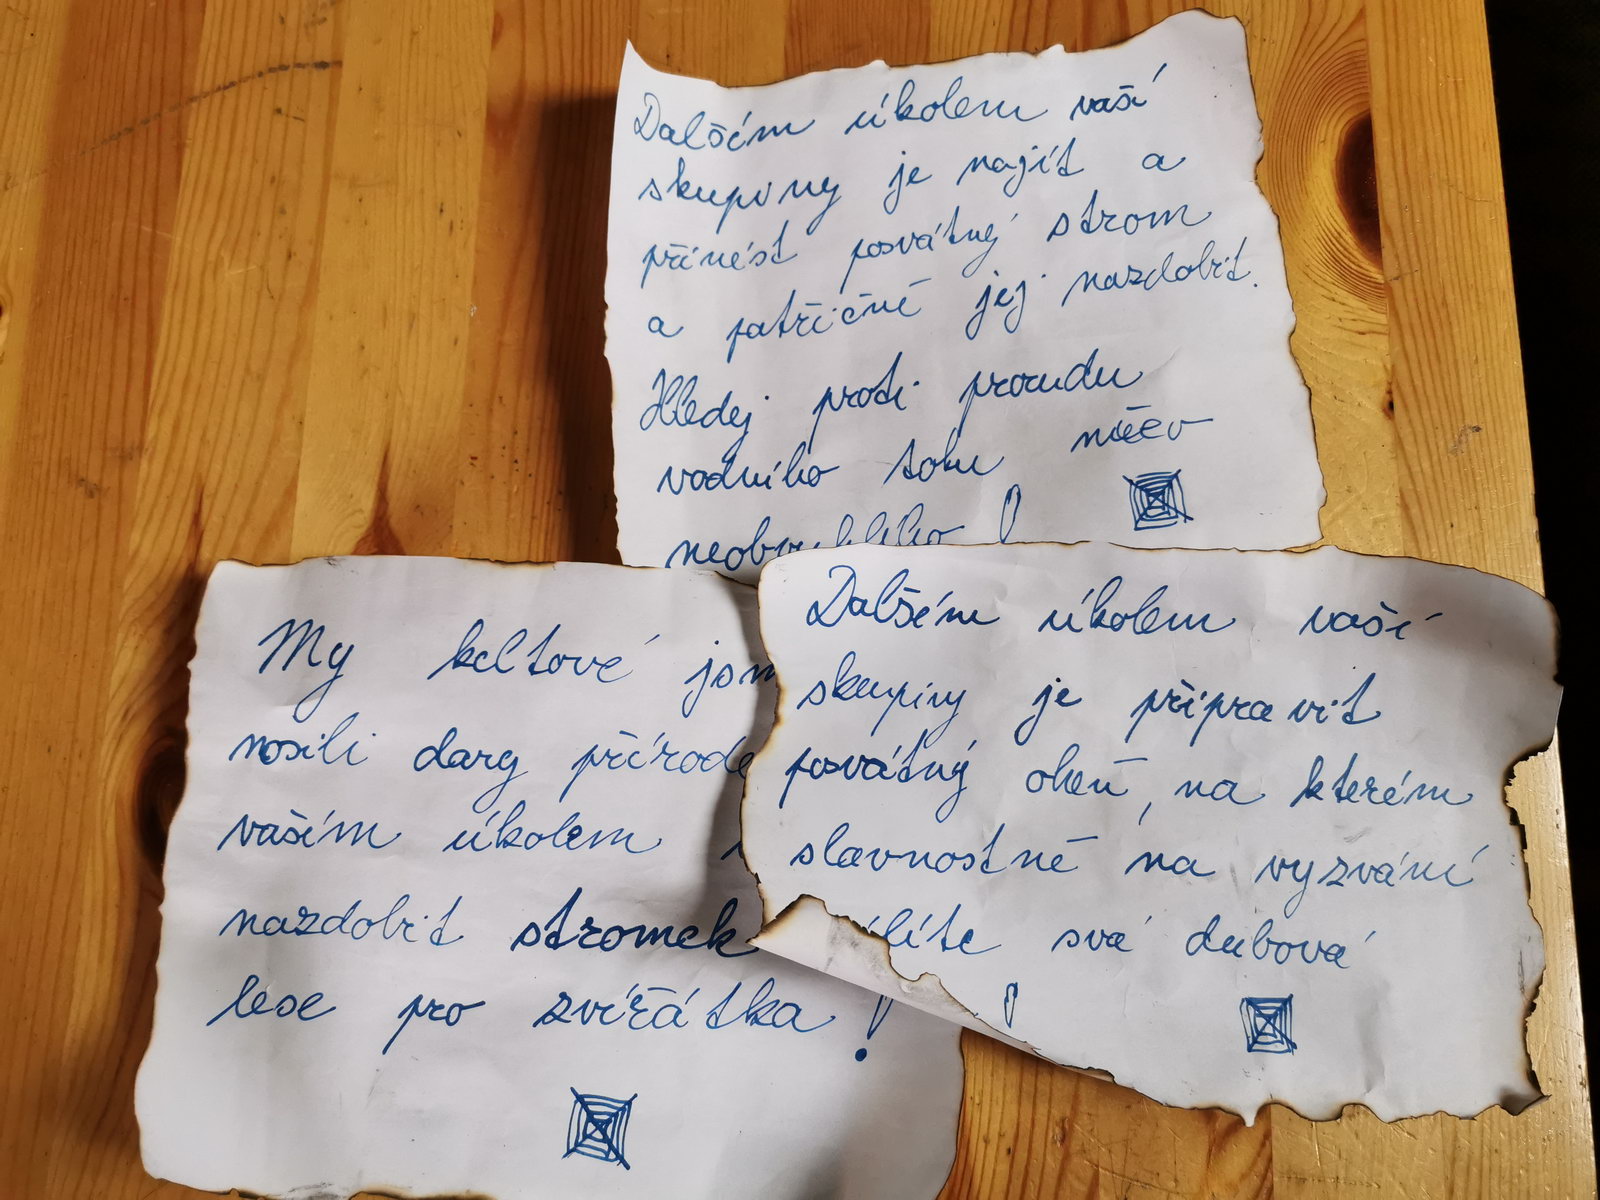 Dalším úkolem vaší
skupiny je najít a
přinést posvátný strom
a patřičně jej nazdobit.
Hledej proti proudu
vodního toku něčeho
neobvyklého !
My keltové jsm
nosili dary přírodě
vaším úkolem
nazdobit stromek
lese pro zvířátka !
Dalším úkolem vaší
skupiny je připravit
posvátný oheň, na kterém
slavnostně na vyzvání
álíte svá dubová
!